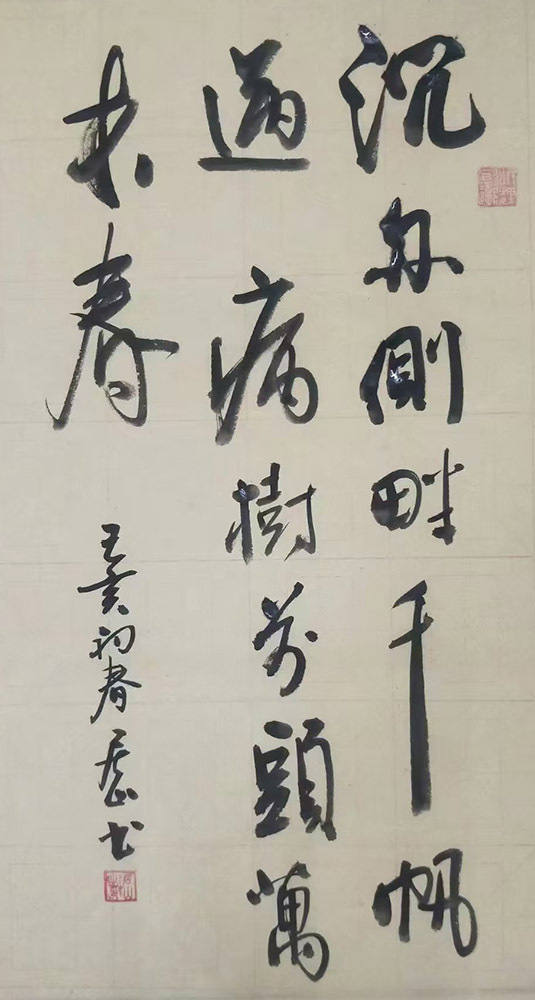 沉舟側畔千帆
過病樹前頭萬
木春
亥初春 書